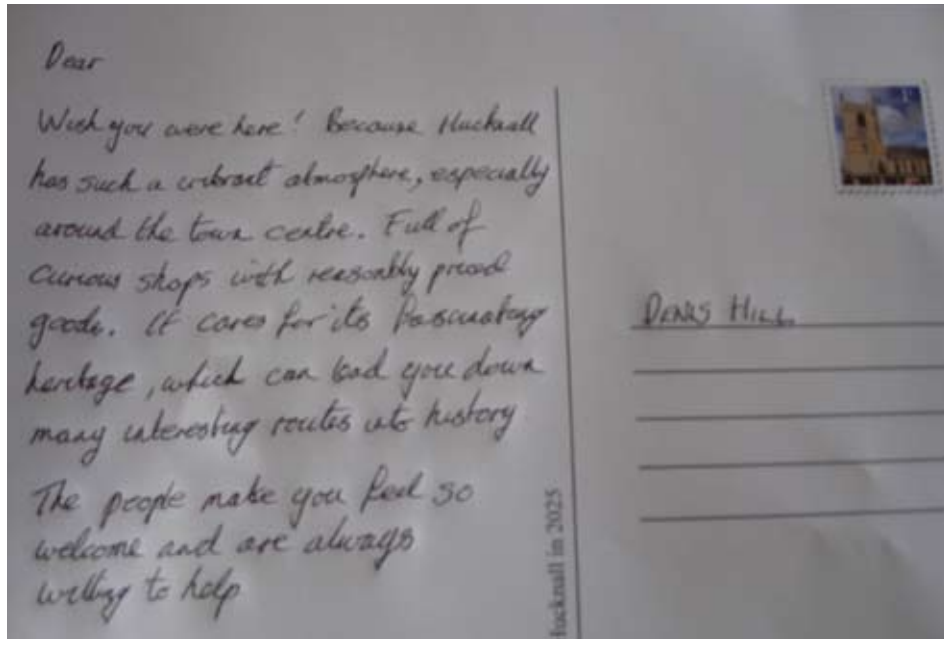 Dear
Wish you were here! Because Hucknall
has such a vibrant atmosphere, especially
around the town centre. Full of
curious shops with reasonably priced
goods. It cares for its fascinating
heritage, which can lead you down
many interesting routes into history
The people make you feel so
welcome and are always
willing to help
Hucknall in 2025
HILL